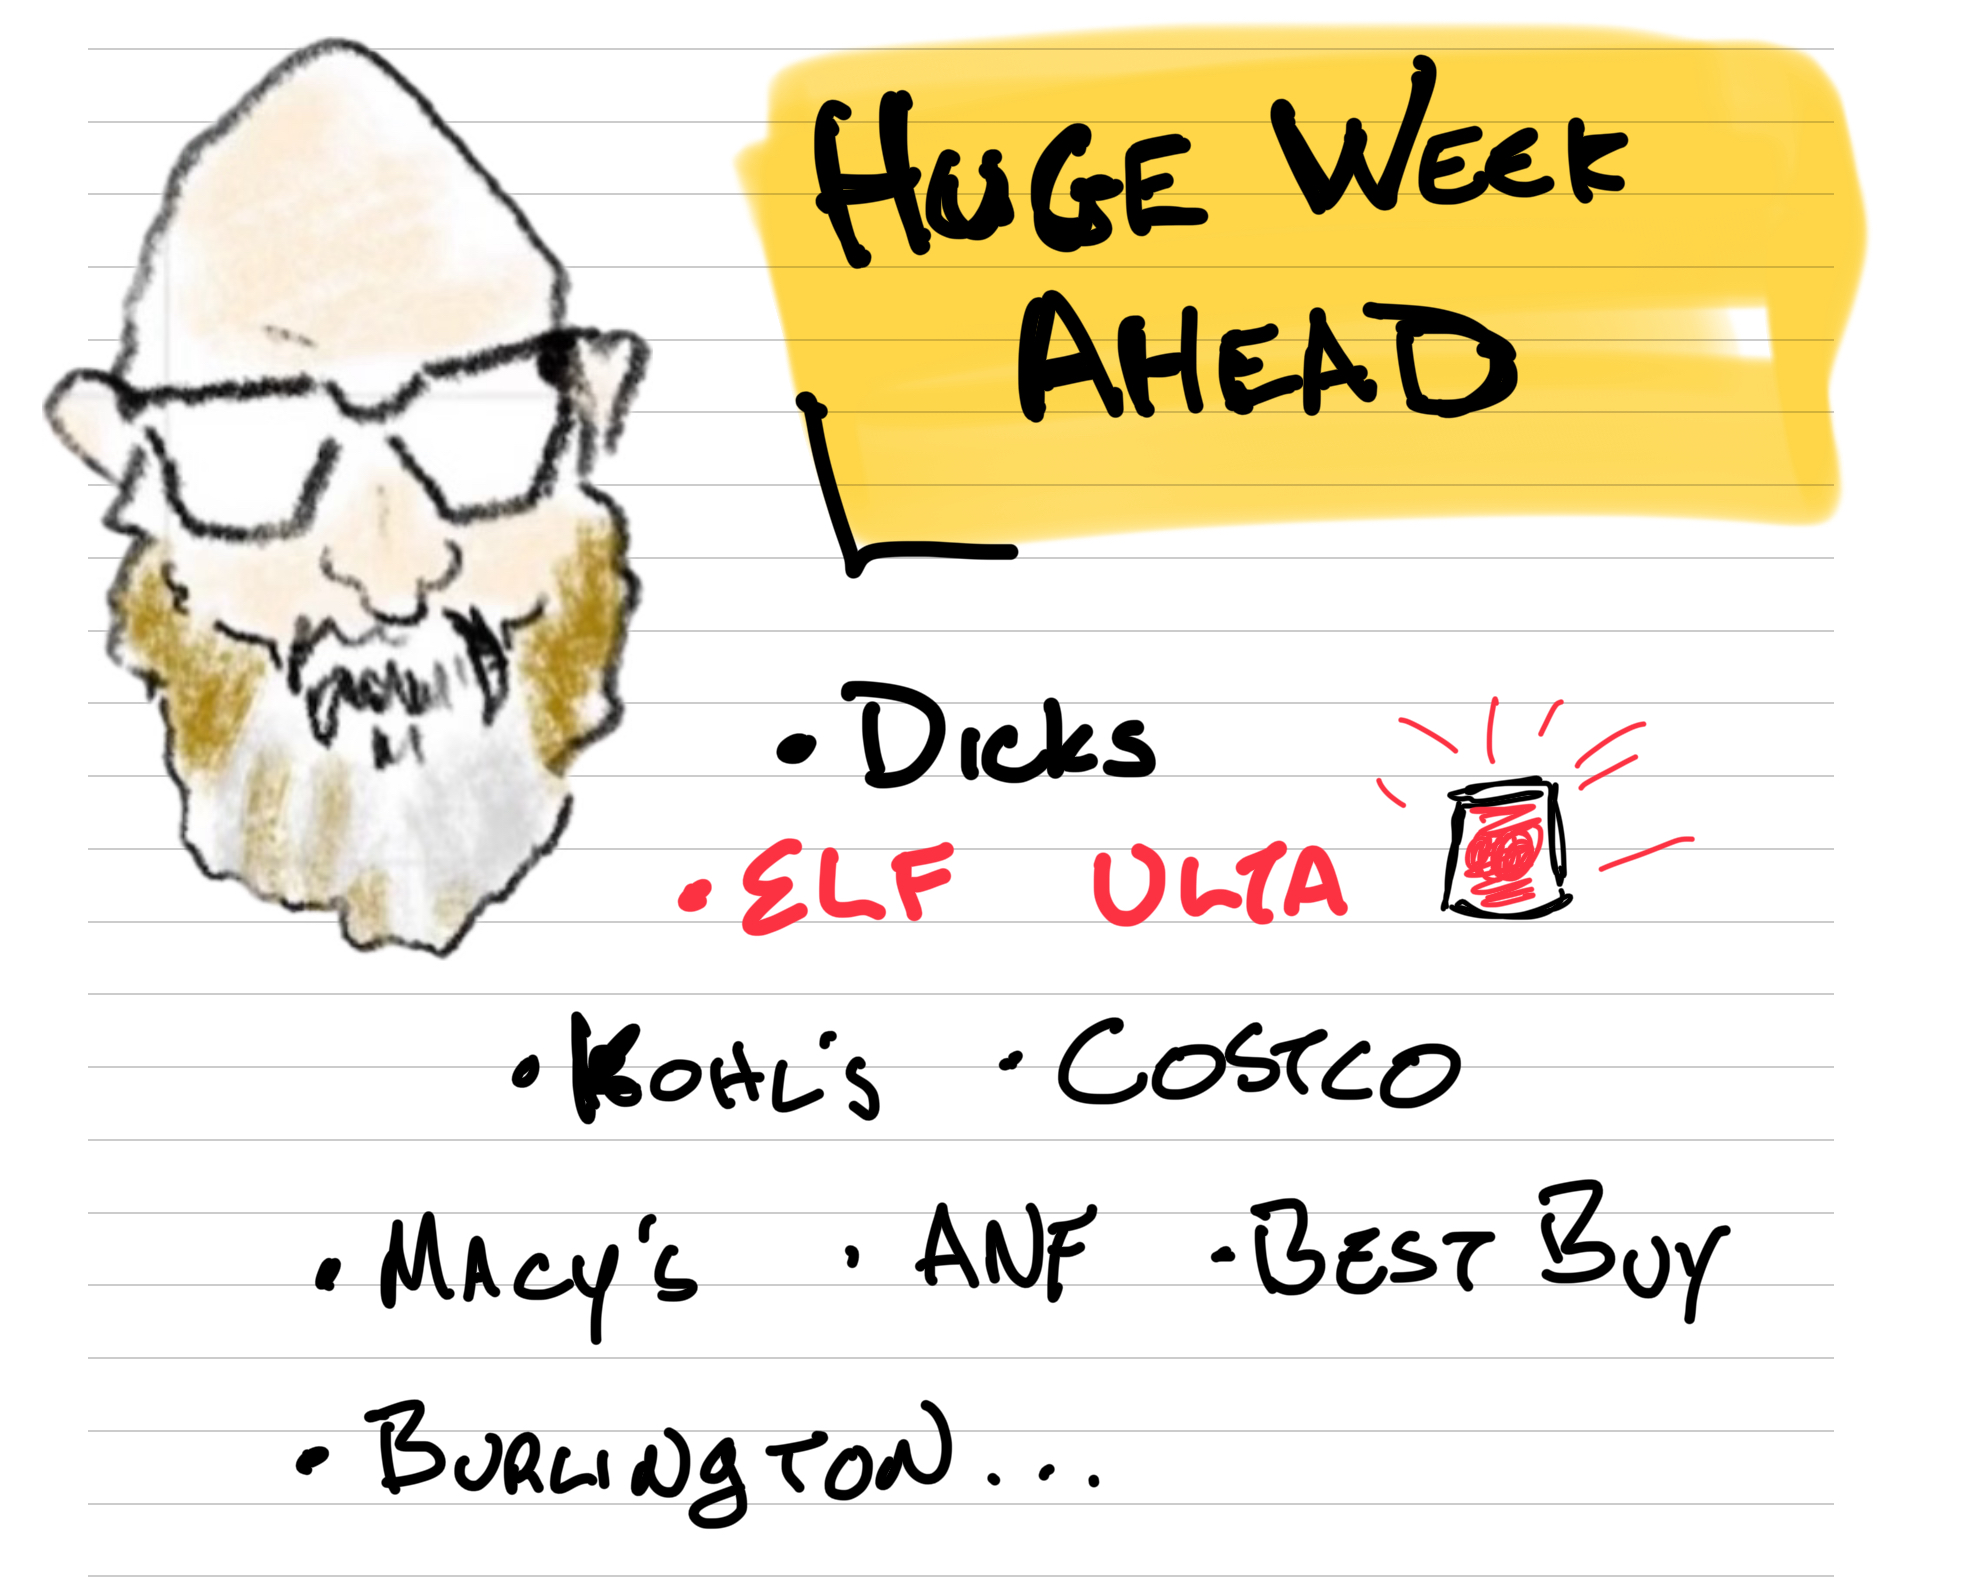 HUGE WEEK
AHEAD
• Dicks
• ELF ULTA
• KOHL'S • COSTCO
• MACY'S • ANF • BEST BUY
• BURLINGTON...